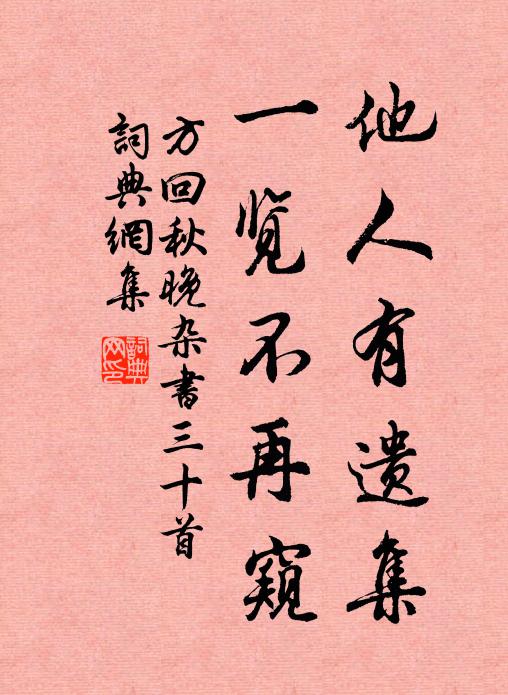 他人有遗集
一览不再窥
方回秋晚杂书三十首
詞典網集
詞典網印